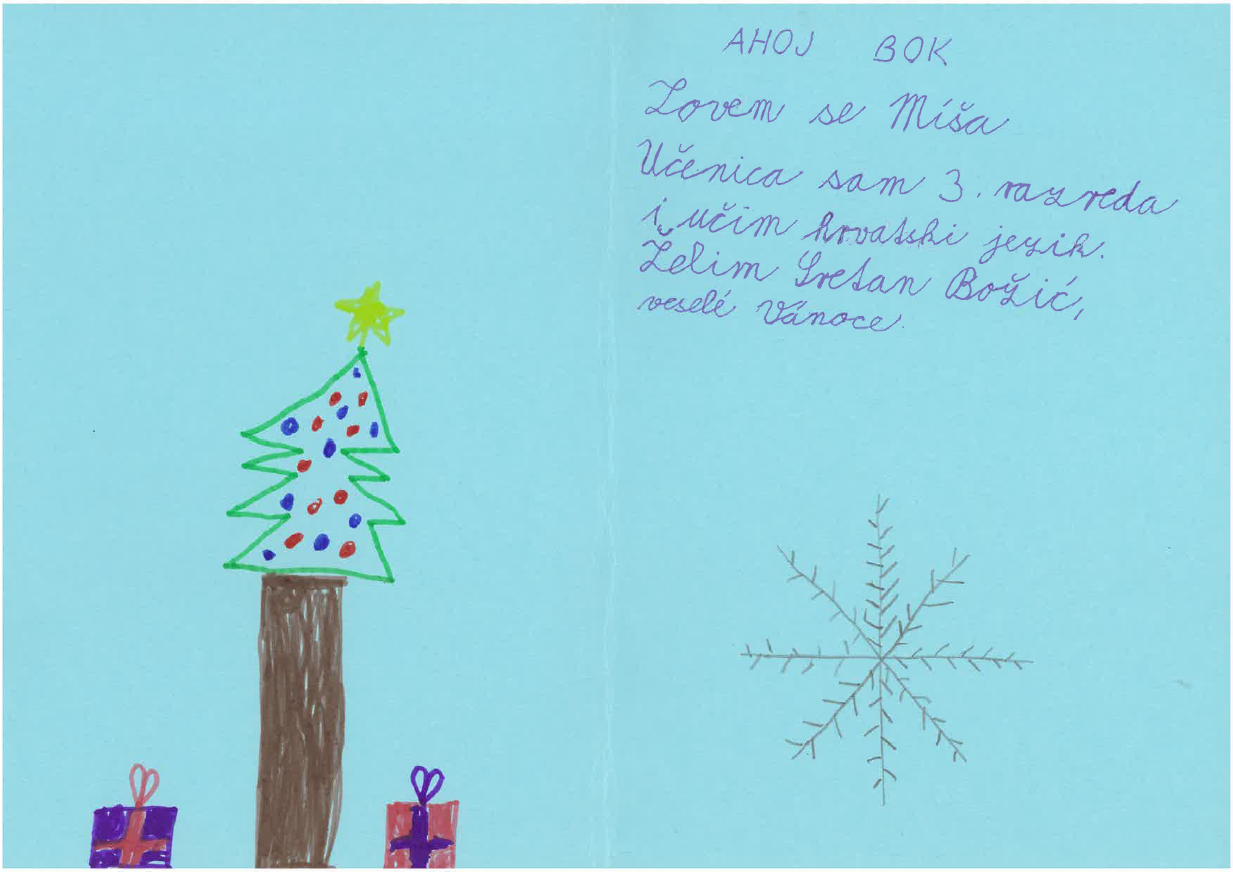 AHOJ BOK
Zovem se Míša
Učenica sam 3. razreda
i učim hrvatski jezik.
Želim Sretan Božić,
veselé Vánoce.